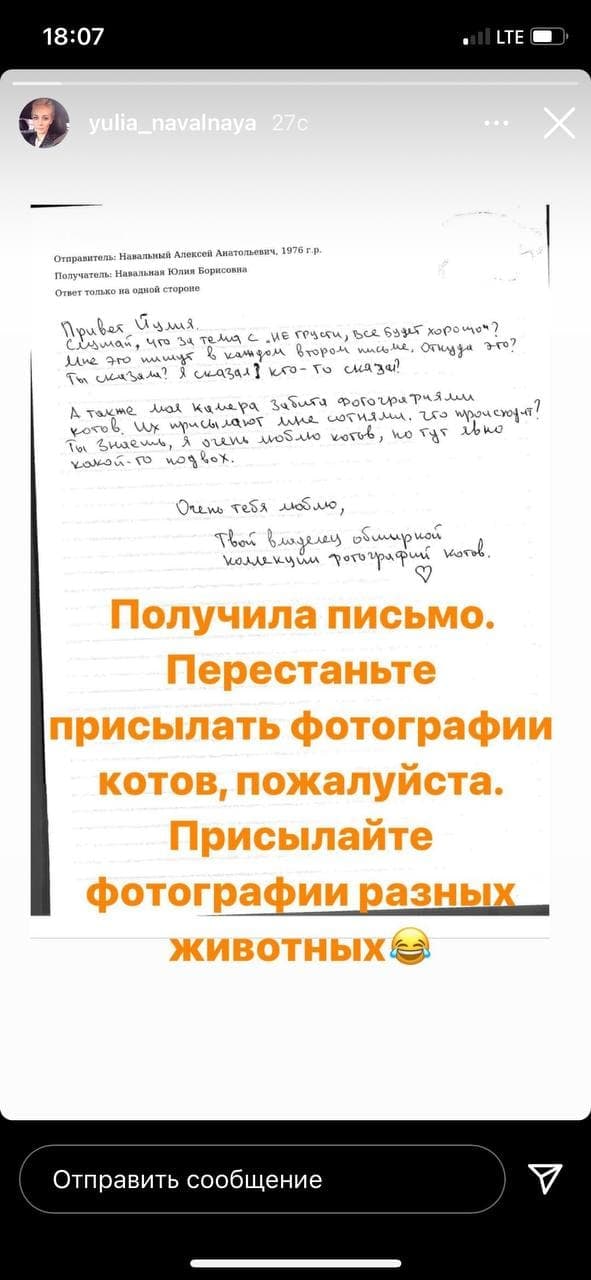 18:07
LTE
yulia_navalnaya 27с
Отправитель: Навальный Алексей Анатольевич, 1976 г.р.
Получатель: Навальная Юлия Борисовна
Ответ только на одной стороне
Привет Йулия.
Слушай, что за тема с „НЕ грусти, все будет хорошо"?
Мне это пишут в каждом втором письме. Откуда это?
Ты сказала? Я сказал? кто-то сказал?
А также моя камера забита фотографиями
котов. Их присылают мне сотнями. что происходит?
Ты знаешь, я очень люблю котов, но тут явно
какой-то подвох.
Очень тебя люблю,
Твой владелец обширной
коллекции фотографий котов.
♡
Получила письмо.
Перестаньте
присылать фотографии
котов, пожалуйста.
Присылайте
фотографии разных
животных😂
Отправить сообщение